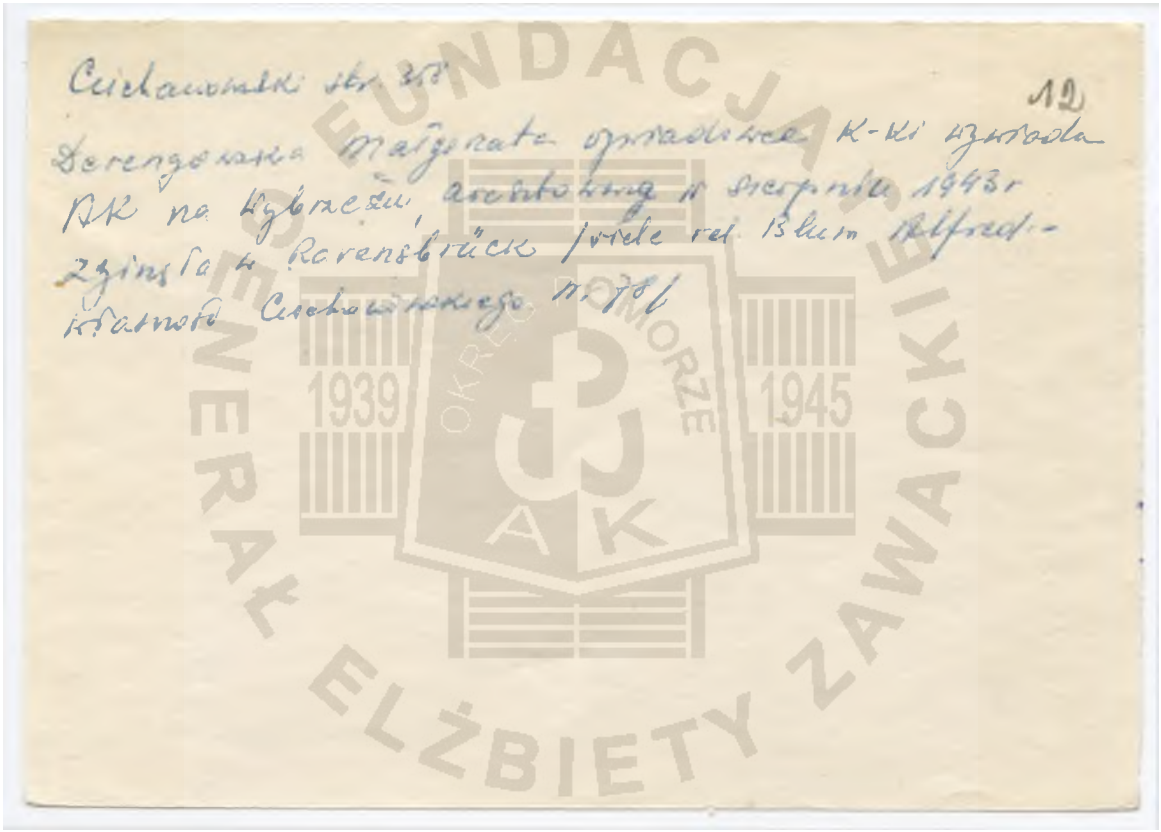 Ciechanowski str. 358
12
Derengowska Małgorzata wywiadowca K-ki wywiadu
AK na Wybrzeżu, aresztowaną w sierpniu 1943 r
zginęła w Ravensbrück /vide rel. Blum Alfred -
własność Ciechanowskiego nr 78/
FUNDACJA
GENERAŁ ELŻBIETY ZAWACKIEJ
OKRĘG POMORZE
1939
1945
AK